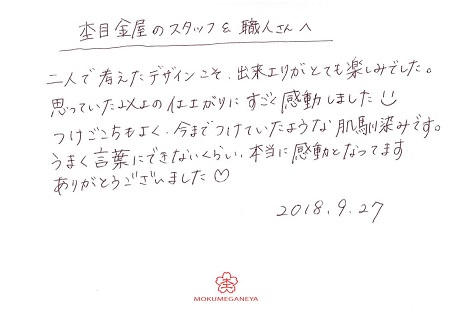 杢目金屋のスタッフ & 職人さんへ
二人で考えたデザインこそ、出来上りがとても楽しみでした。
思っていた以上の仕上がりにすごく感動しました
つけごこちもよく、今までつけていたような肌馴染みです。
うまく言葉にできないくらい、本当に感動となってます
ありがとうございました♡
2018.9.27
MOKUMEGANEYA